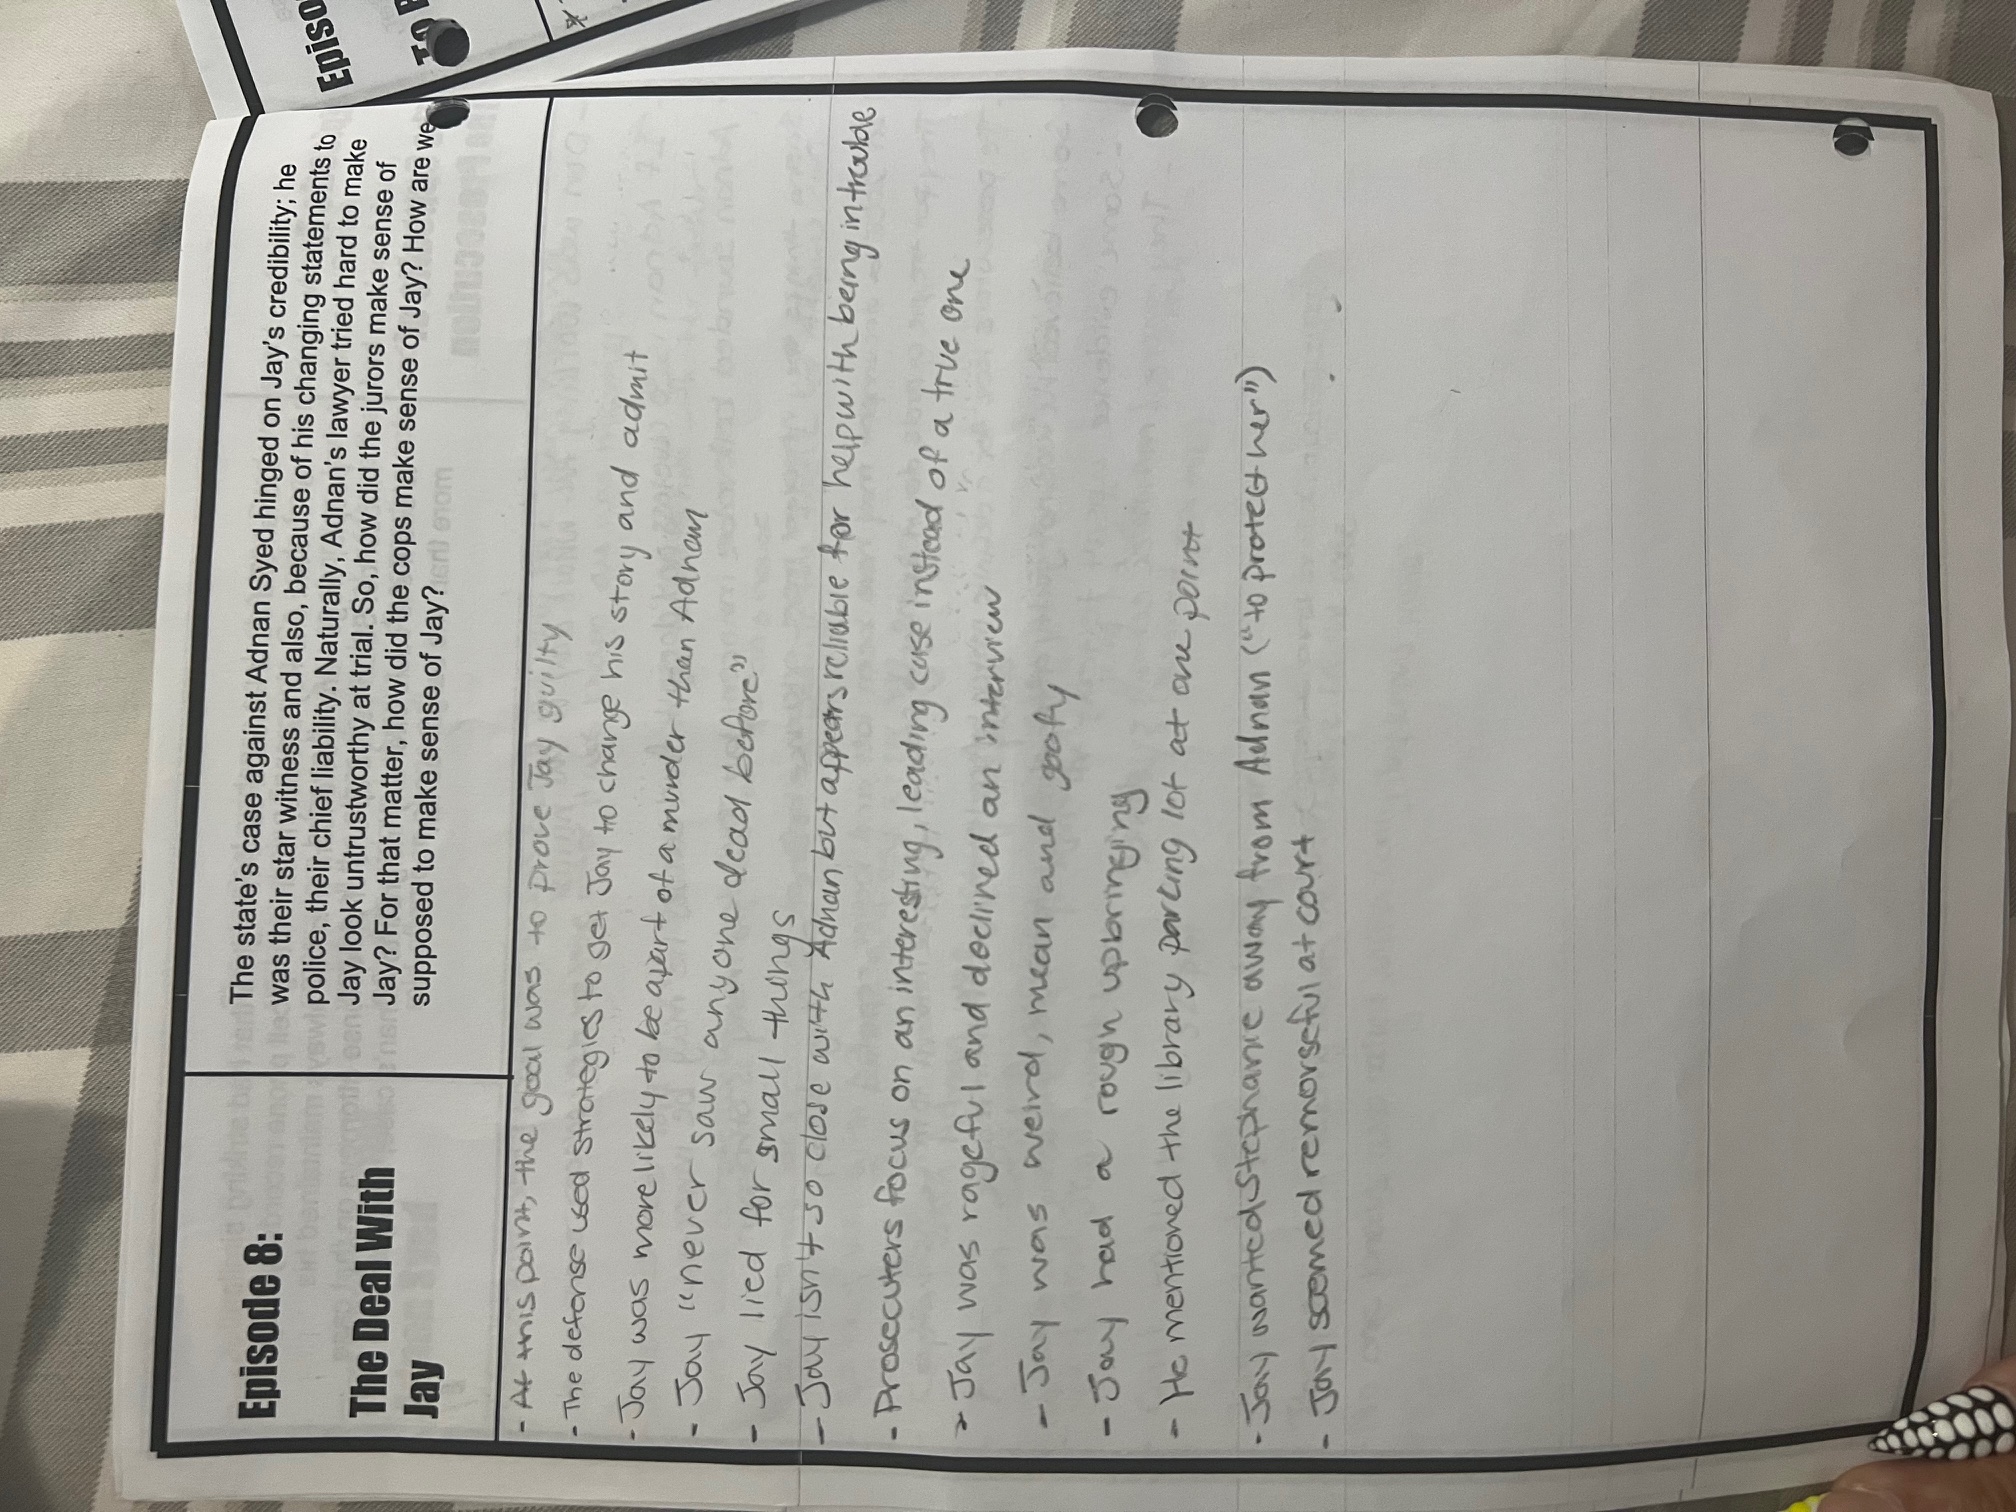 Episode 8:
The Deal With
Jay
The state's case against Adnan Syed hinged on Jay's credibility; he
was their star witness and also, because of his changing statements to
police, their chief liability. Naturally, Adnan's lawyer tried hard to make
Jay look untrustworthy at trial. So, how did the jurors make sense of
Jay? For that matter, how did the cops make sense of Jay? How are we
supposed to make sense of Jay?
- At this point, the goal was to prove Jay guilty
- The defense used strategies to get Jay to change his story and admit
- Jay was more likely to be apart of a murder than Adnan
- Jay "never saw anyone dead before"
- Jay lied for small things
- Jay isn't so close with Adnan but appears reliable for help with being in trouble
- Prosecuters focus on an interesting, leading case instead of a true one
- Jay was rageful and declined an interview
- Jay was weird, mean and goofy
- Jay had a rough upbringing
- He mentioned the library parcing lot at one point
- Jay wanted Stephanie away from Adnan ("to protect her")
- Jay seemed remorseful at court
Episo